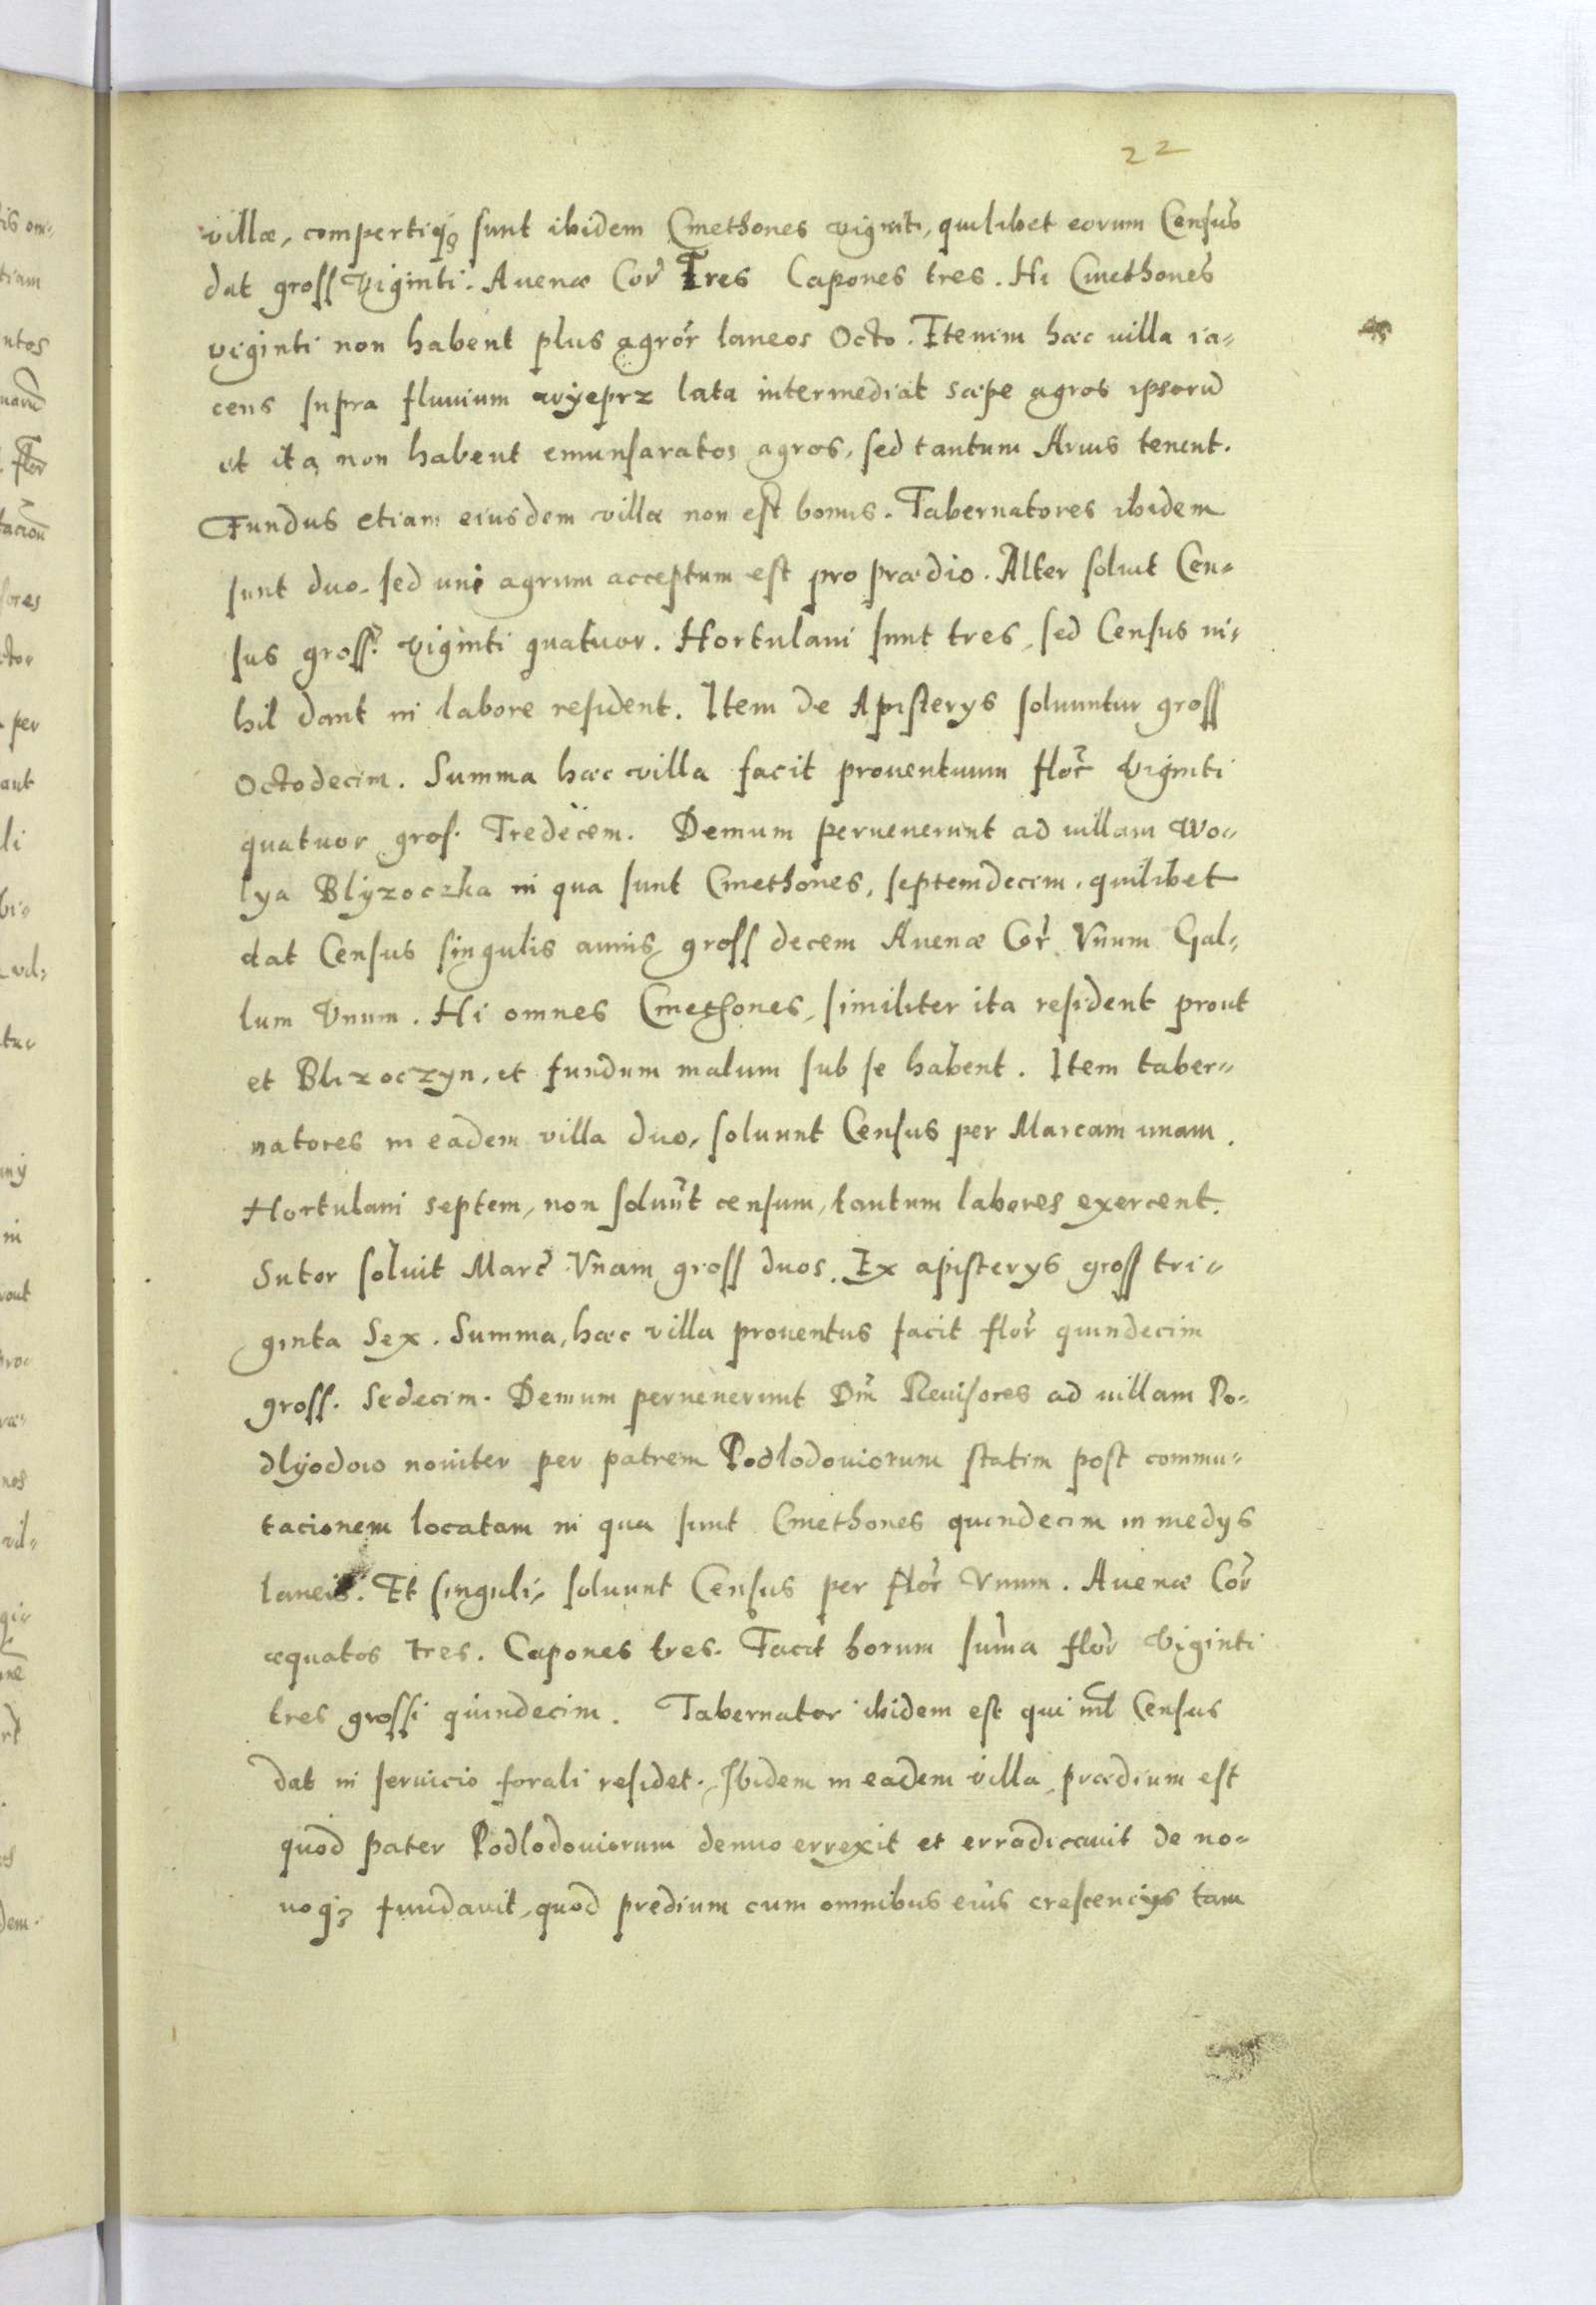 22
villæ, compertiq₃ sunt ibidem Cmethones viginti, quilibet eorum Census
dat gross Viginti. Auenæ Cor̃ Tres Capones tres. Hi Cmethones
viginti non habent plus agror̃ laneos Octo. Etenim hæc uilla ia-
cens supra fluuium wÿeprz lata intermediat sæpe agros ipsorũ
et ita non habent emunsuratos agros, sed tantum Aruis tenent.
Fundus etiam eiusdem villæ non est bonus. Tabernatores ibidem
sunt duo, sed uni agrum acceptum est pro prædio. Alter soluit Cen-
sus gross. Viginti quatuor. Hortulani sunt tres, sed Census ni-
hil dant in labore resident. Item de Apisterys soluuntur gross
Octodecim. Summa hæc villa facit prouentuum flor̃ Viginti
quatuor gros. Tredecem. Demum peruenerunt ad uillam Wo-
lya Blyzoczka in qua sunt Cmethones, septemdecim, quilibet
dat Census singulis annis, gross decem Auenæ Cor̃ Vnum Gal-
lum Vnum. Hi omnes Cmethones, similiter ita resident prout
et Blizoczyn, et fundum malum sub se habent. Item taber-
natores in eadem villa duo, soluunt Census per Marcam unam.
Hortulani septem, non soluũt censum, tantum labores exercent.
Sutor soluit Marc̃ Vnam gross duos. Ex apisterys gross tri-
ginta Sex. Summa, hæc villa prouentus facit flor̃ quindecim
gross. Sedecim. Demum peruenerunt Dñi Reuisores ad uillam Po-
dlyodow nouiter per patrem Podlodouiorum statim post commu-
tacionem locatam in qua sunt Cmethones quindecim in medys
laneis. Et singuli, soluunt Census per flor̃ Vnum. Auenæ Cor̃
æquatos tres. Capones tres. Facit horum sum̃a flor̃ Viginti
tres grossi quindecim. Tabernator ibidem est qui nil̃ Census
dat in seruicio forali residet. Ibidem in eadem villa prædium est
quod pater Podlodouiorum denuo errexit et erradicauit de no-
uoq₃ fundauit, quod predium cum omnibus eius crescencys tam